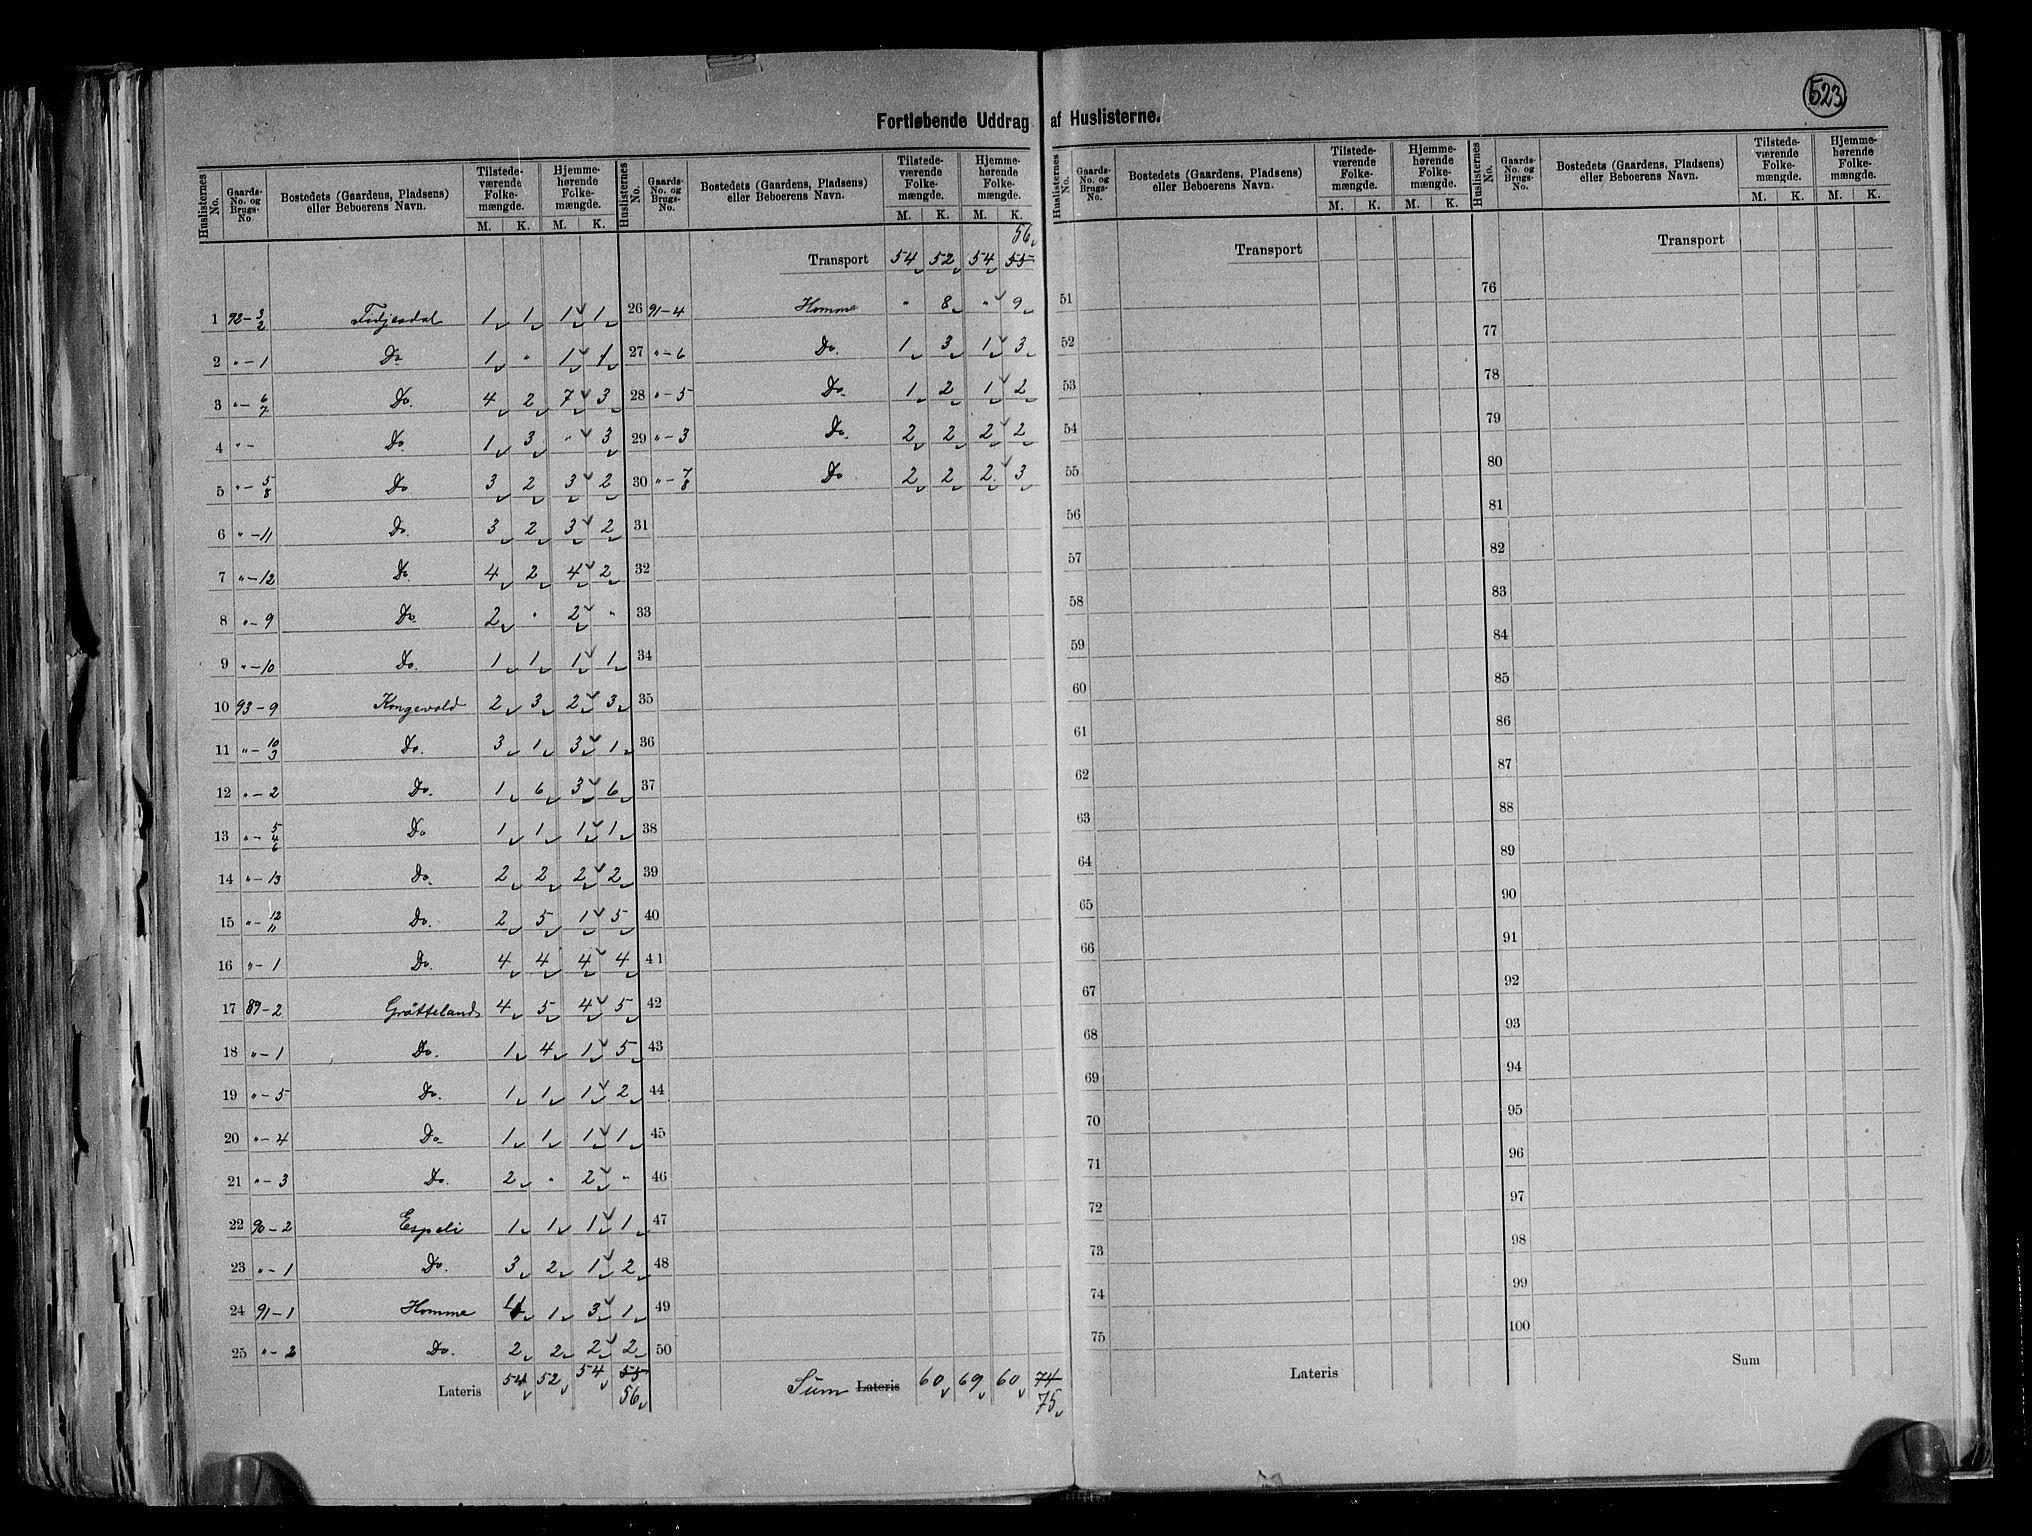 523
Fortløbende Uddrag af Huslisterne.
Huslisternes No. | Gaards-No. og Brugs-No | Bostedets (Gaardens, Pladsens) eller Beboerens Navn. | Tilstedeværende Folkemængde. M. K. | Hjemmehørende Folkemængde. M. K.
1 92-3/2 Fidjesdal 1 1 1 1
2 "-1 Do 1 " 1 1
3 "-6/7 Do. 4 2 7 3
4 "- Do 1 3 " 3
5 "-5/8 Do 3 2 3 2
6 "-11 Do. 3 2 3 2
7 "-12 Do 4 2 4 2
8 "-9 Do 2 " 2 "
9 "-10 Do. 1 1 1 1
10 93-9 Kongevold 2 3 2 3
11 "-10/3 Do. 3 1 3 1
12 "-2 Do. 1 6 3 6
13 "-5/4/6 Do 1 1 1 1
14 "-13 Do. 2 2 2 2
15 "-12/11 Do. 2 5 1 5
16 "-1 Do. 4 4 4 4
17 89-2 Gråtteland 4 5 4 5
18 "-1 Do. 1 4 1 5
19 "-5 Do. 1 1 1 2
20 "-4 Do 1 1 1 1
21 "-3 Do. 2 " 2 "
22 90-2 Espeli 1 1 1 1
23 "-1 Do. 3 2 1 2
24 91-1 Homme 4 1 3 1
25 "-2 Do. 2 2 2 2
Lateris 54 52 54 55
56
Huslisternes No. | Gaards-No. og Brugs-No. | Bostedets (Gaardens, Pladsens) eller Beboerens Navn. | Tilstedeværende Folkemængde. M. K. | Hjemmehørende Folkemængde. M. K.
56
Transport 54 52 54 55
26 91-4 Homme " 8 " 9
27 "-6 Do. 1 3 1 3
28 "-5 Do 1 2 1 2
29 "-3 Do. 2 2 2 2
30 "-7/8 Do 2 2 2 3
31
32
33
34
35
36
37
38
39
40
41
42
43
44
45
46
47
48
49
50
Sum Lateris 60 69 60 74
75
Huslisternes No. | Gaards-No. og Brugs-No. | Bostedets (Gaardens, Pladsens) eller Beboerens Navn. | Tilstedeværende Folkemængde. M. K. | Hjemmehørende Folkemængde. M. K.
Transport
51
52
53
54
55
56
57
58
59
60
61
62
63
64
65
66
67
68
69
70
71
72
73
74
75
Lateris
Huslisternes No. | Gaards-No. og Brugs-No. | Bostedets (Gaardens, Pladsens) eller Beboerens Navn. | Tilstedeværende Folkemængde. M. K. | Hjemmehørende Folkemængde. M. K.
Transport
76
77
78
79
80
81
82
83
84
85
86
87
88
89
90
91
92
93
94
95
96
97
98
99
100
Sum